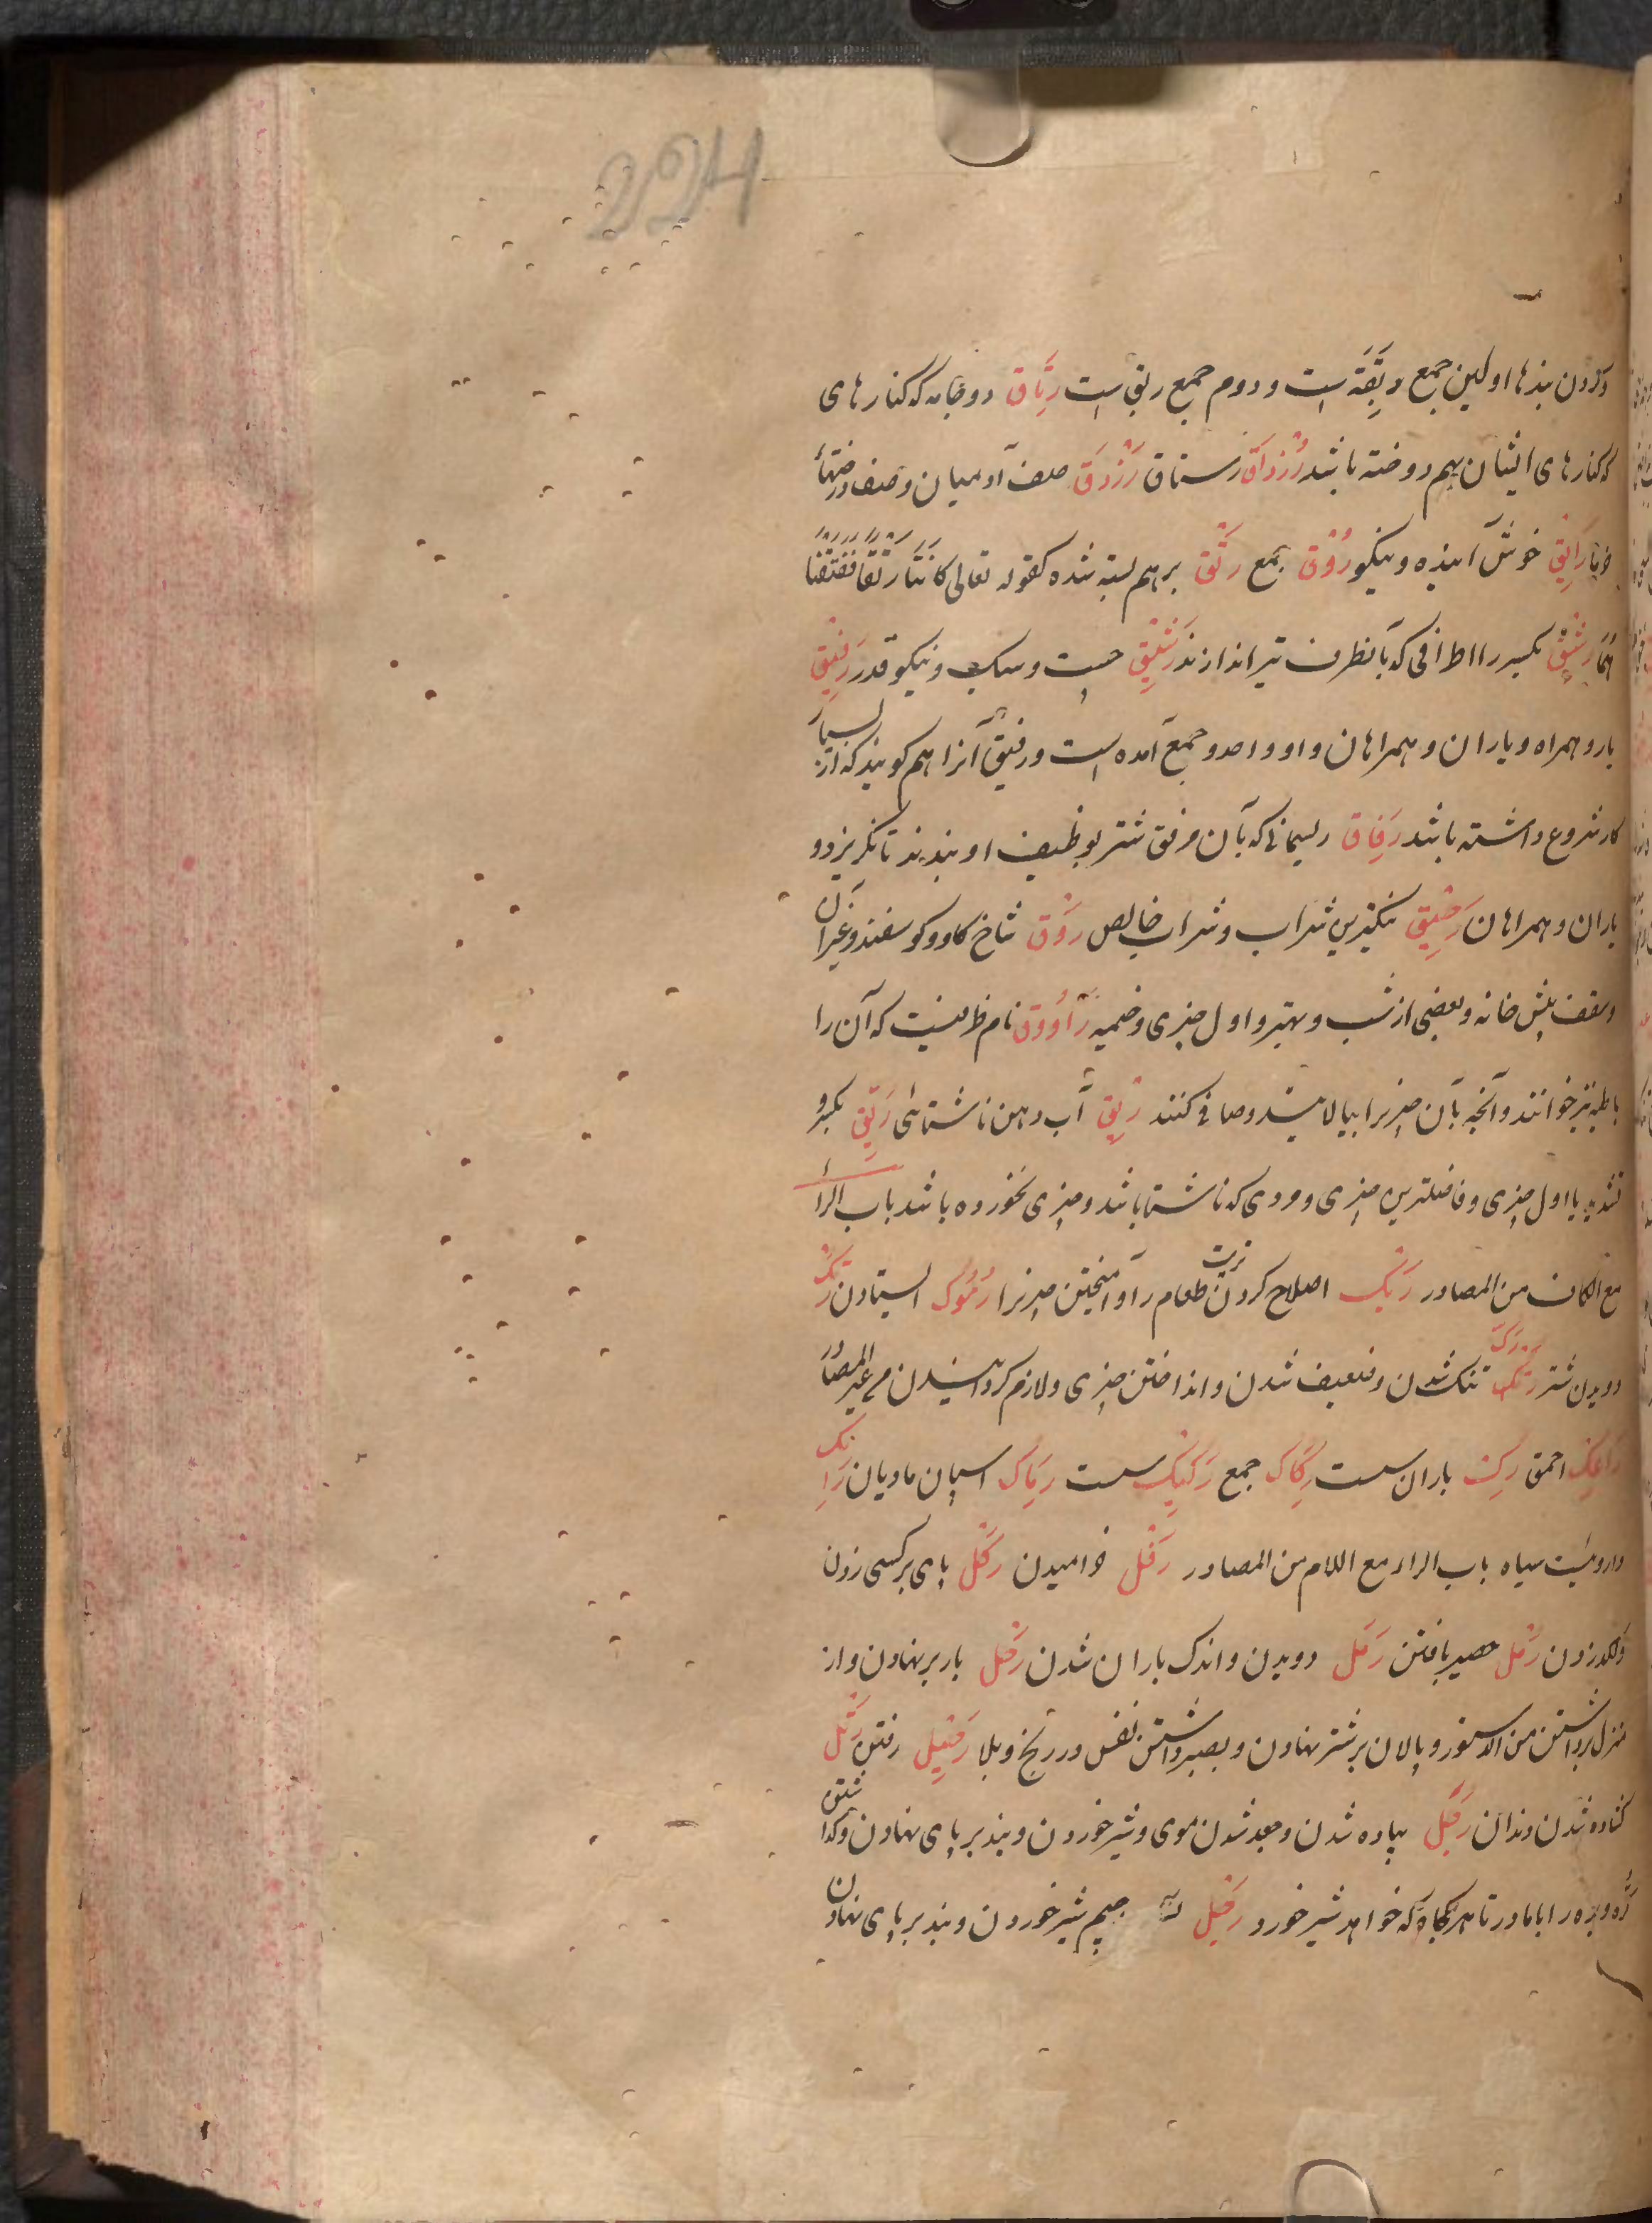 وکردن بندها اولین جمع ربقة است و دوم جمع ربق است رتاق دو جامه که کنارهای
که کنارهای ایشان بهم دوخته باشد رزداق رستاق رزدق صف آدمیان و صف درختهاء
خرما رایق خوش آینده و نیکو روق جمع رتق برهم بسته شده کقوله تعالی کانتا رتقا ففتقنا
هما رشق بکسر را اطرافی که بآنطرف تیر اندازند رشیق چست و سبک و نیکو قد رفیق
یار و همراه و یاران و همراهان و او واحد و جمع آمده است و رفیق آنرا هم گویند که از بسیار
کار شروع داشته باشد رفاق ریسمانی که بآن مرفق شتر بوظیف او بندند تا نگریزد و
یاران و همراهان رحیق نیکترین شراب و شراب خالص روق شاخ گاو و گوسفند و غیر آن
و سقف پیش خانه و بعضی از شب و بهتر و اول چیزی و خیمه راووق نام ظرفیست که آن را
باطیه نیز خوانند و آنچه بآن چیز را بپالایند و صافی کنند ریق آب دهن ناشتائی ریق بکسر و
تشدید یا اول چیزی و فاضلترین چیزی و مردی که ناشتا باشد و چیزی نخورده باشد باب الراء
مع الکاف من المصادر ربک اصلاح کردن ترید طعام را و آمیختن چیز را رموک ایستادن رتک
دویدن شتر رتک رکک تنک شدن و ضعیف شدن و انداختن چیزی و لازم گردانیدن من غیر المصادر
رامک احمق رک باران سست رکاک جمع رکیک سست رماک اسپان مادیان رامک
داروئیست سیاه باب الراء مع اللام من المصادر رفل خرامیدن رکل پای بر کسی زدن
و لگد زدن رمل حصیر بافتن رمل دویدن و اندک باران شدن رحل بار بر نهادن و از
منزل برداشتن من الدستور و پالان بر شتر نهادن و بصبر داشتن نفس در رنج و بلا رحیل رفتن رتل
گشاده شدن دندان رجل پیاده شدن و جعد شدن موی و شیر خوردن و بند بر پای نهادن و گذاشتن
کره و بره را با مادر تا هر گاه که خواهد شیر خورد رجل جیم شیر خوردن و بند بر پای نهادن